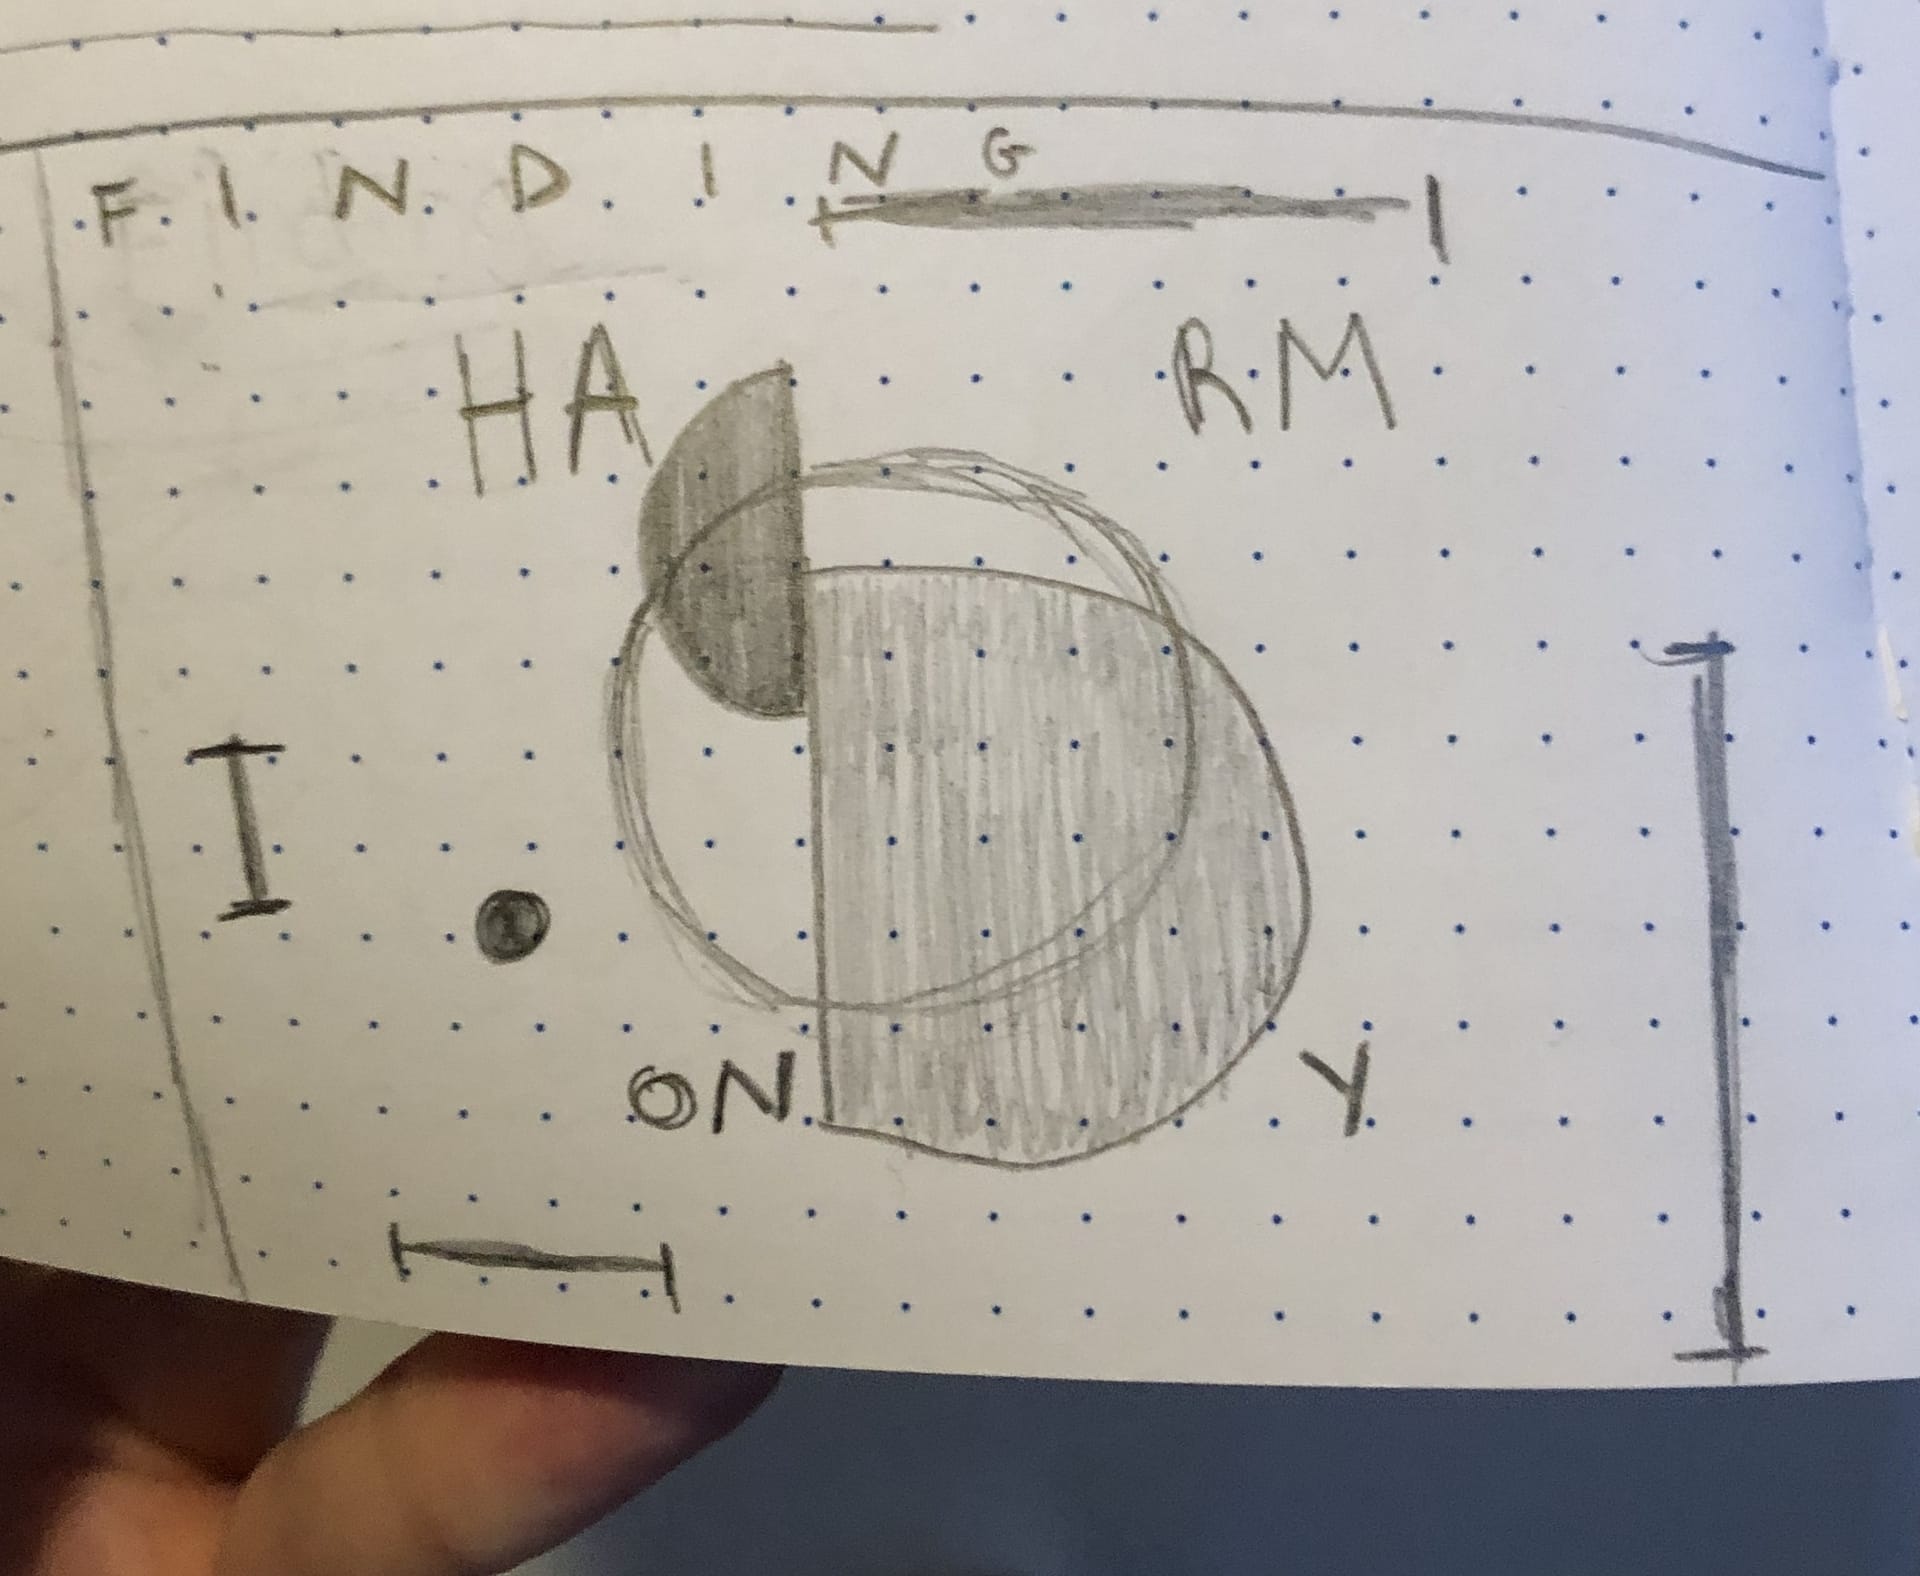 FINDING
HA RM
ON Y